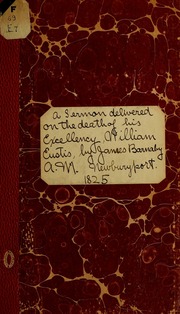 F
69
.E7
a Sermon delivered
on the death of his
Excellency William
Eustis, by James Barnaby
A.M. Newburyport.
1825